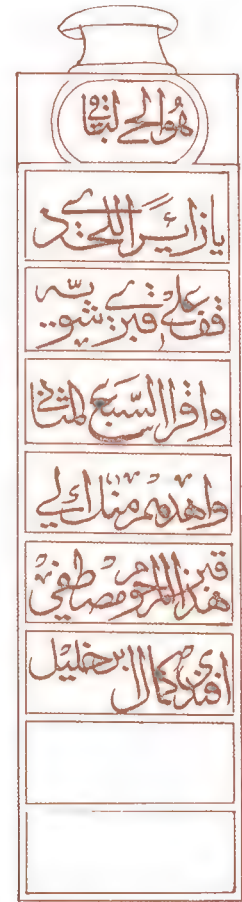 هو الحي الباقي
يا زايرًا للحدي
قف على قبري شويه
واقرا السبع المثاني
واهدهم منك الي
هذا قبر المرحوم مصطفي
افندي كمال ابن خليل